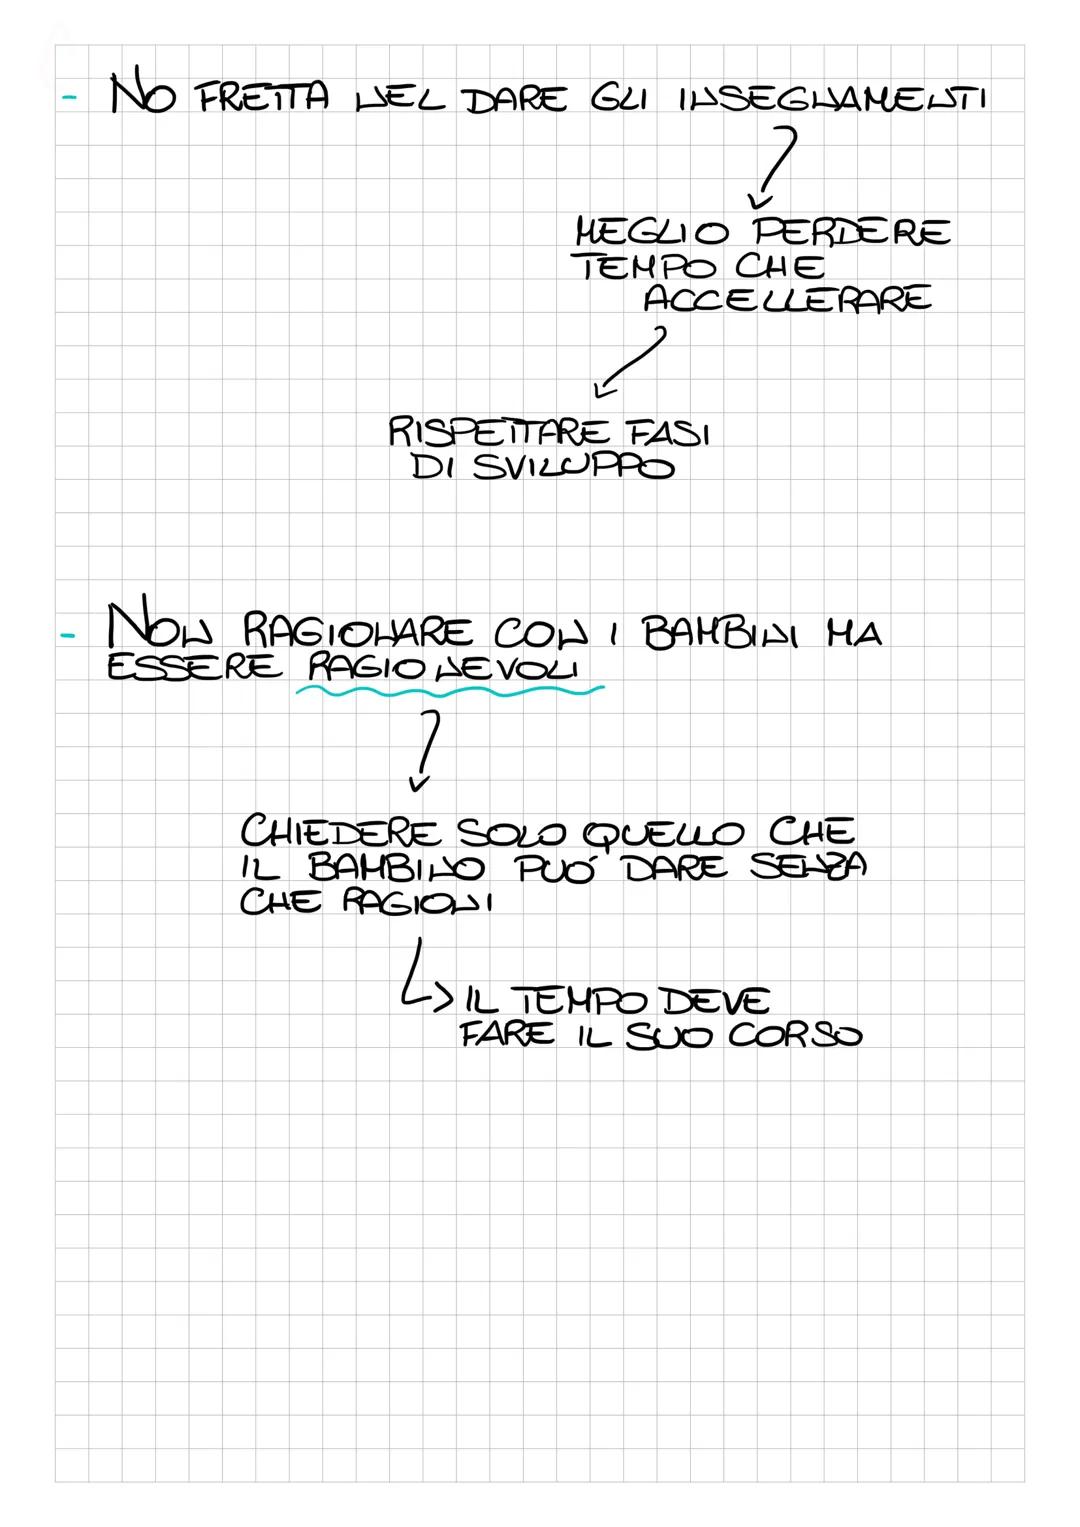 - NO FRETTA NEL DARE GLI INSEGNAMENTI
MEGLIO PERDERE
TEMPO CHE
ACCELLERARE
RISPETTARE FASI
DI SVILUPPO
- NON RAGIONARE CON I BAMBINI MA
ESSERE RAGIONEVOLI
CHIEDERE SOLO QUELLO CHE
IL BAMBINO PUÓ DARE SENZA
CHE RAGIONI
IL TEMPO DEVE
FARE IL SUO CORSO